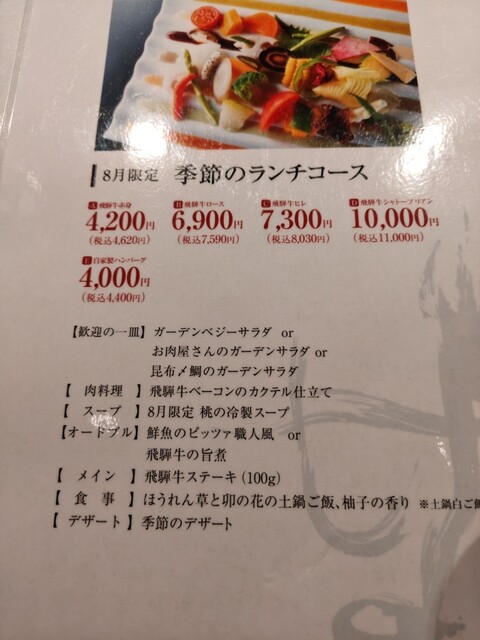 8月限定 季節のランチコース
A 飛騨牛赤身 B 飛騨牛ロース C 飛騨牛ヒレ D 飛騨牛シャトーブリアン
4,200円 6,900円 7,300円 10,000円
(税込4,620円) (税込7,590円) (税込8,030円) (税込11,000円)
E 自家製ハンバーグ
4,000円
(税込4,400円)
【歓迎の一皿】ガーデンベジーサラダ or
お肉屋さんのガーデンサラダ or
昆布〆鯛のガーデンサラダ
【 肉料理 】飛騨牛ベーコンのカクテル仕立て
【 スープ 】8月限定 桃の冷製スープ
【オードブル】鮮魚のピッツァ職人風 or
飛騨牛の旨煮
【 メイン 】飛騨牛ステーキ(100g)
【 食 事 】ほうれん草と卯の花の土鍋ご飯、柚子の香り ※土鍋白ご飯
【 デザート 】季節のデザート